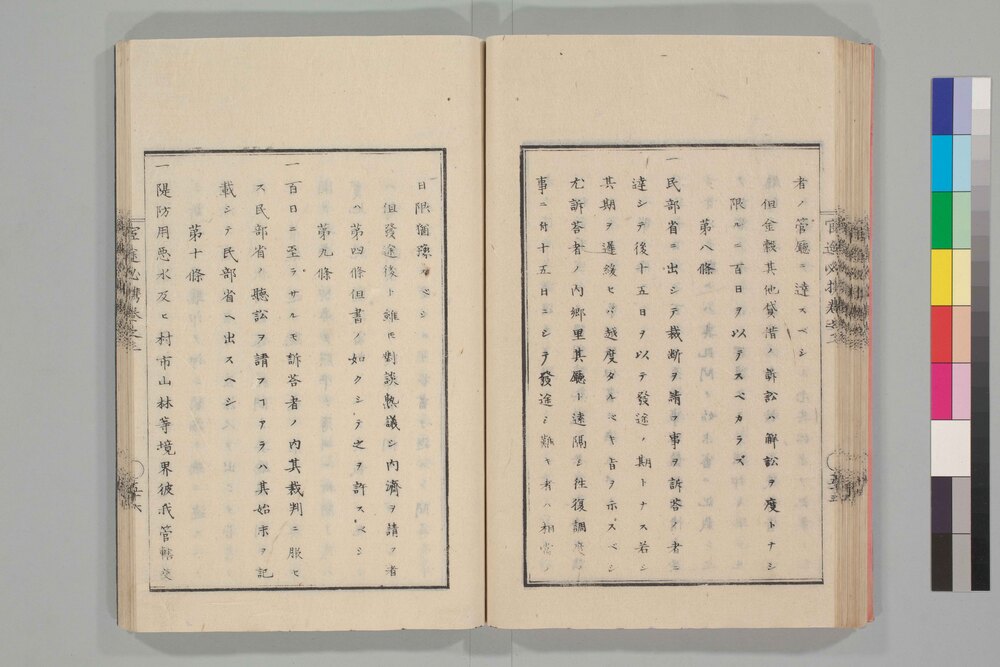 者ノ管廳ニ達スベシ
但金穀其他貸借ノ訴訟ハ解訟ヲ度トナシ
限ルニ百日ヲ以テスベカラズ
第八條
一民部省ニ出シテ裁断ヲ請フ事ヲ訴答後者ニ
達シテ後十五日ヲ以テ發途ノ期トナス若シ
其期ヲ遅緩セバ越度タルベキ旨ヲ示スベシ
尤訴答者ノ内郷里其廳ト遠隔シ往復調度
事ニ付十五日ニシテ發途シ難キ者ハ相當ノ
日限猶豫スベシ
但發途後ト雖𪜈對談熟議シ内濟ヲ請フ者
ハ第四條但書ノ如クシテ之ヲ許スベシ
第九條
一百日ニ至ラサルモ訴答者ノ内其裁判ニ服セ
ス民部省ノ聽訟ヲ請フヿアラハ其始末ヲ記
載シテ民部省ヘ出スヘシ
第十條
一隄防用悪水及ヒ村市山林等境界彼我管轄交